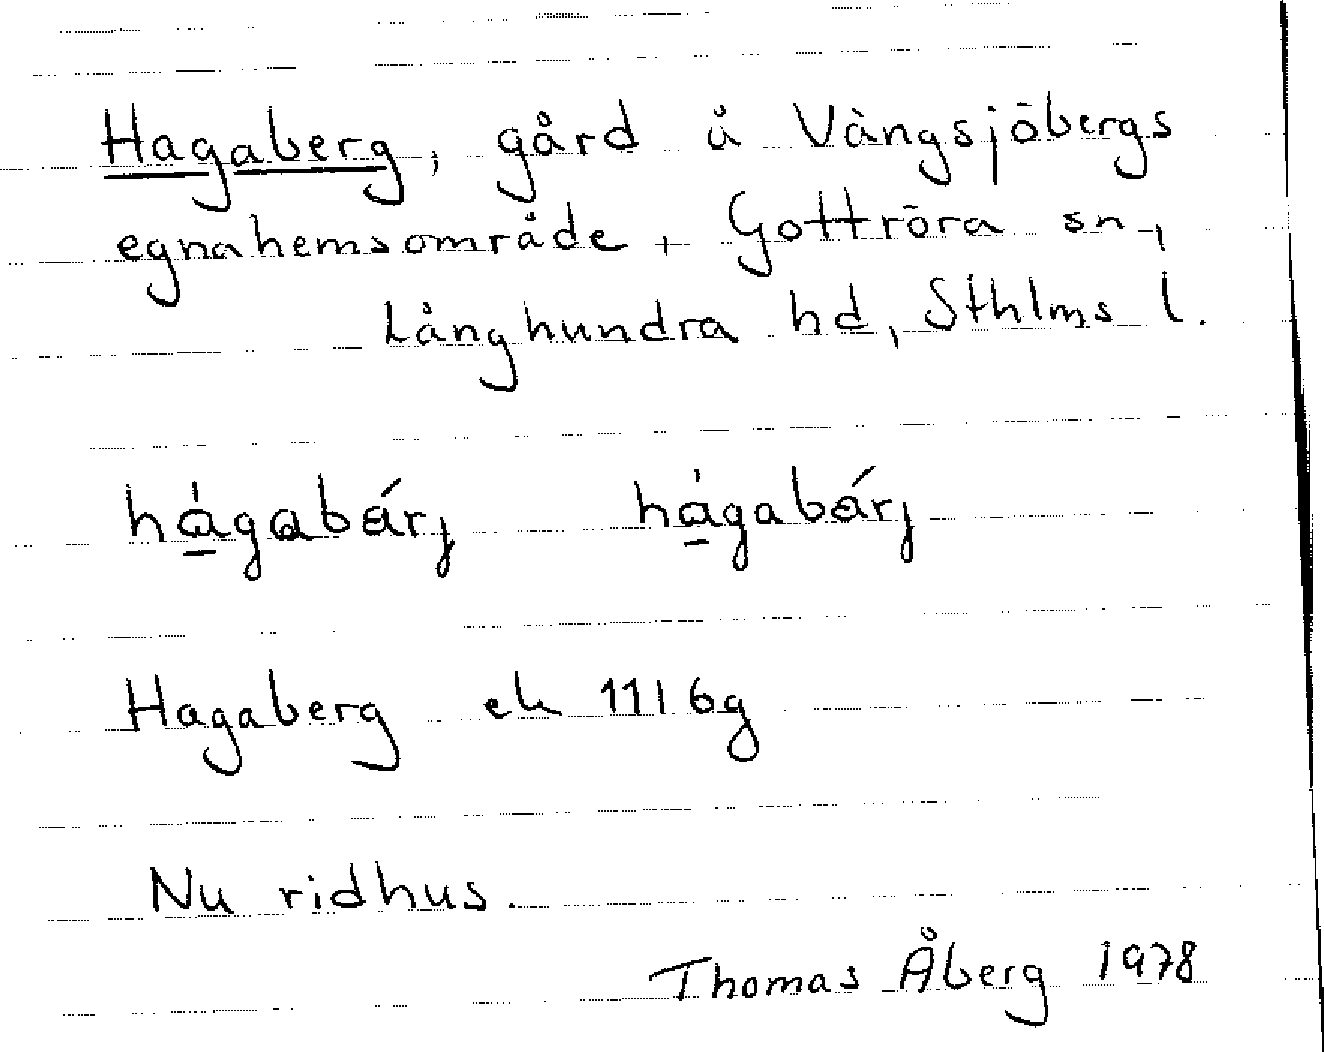 Hagaberg, gård å Vängsjöbergs
egnahemsområde, Gottröra sn,
Långhundra hd, Sthlms l.
hágabárj hágabárj
Hagaberg ek 11I6g
Nu ridhus.
Thomas Åberg 1978